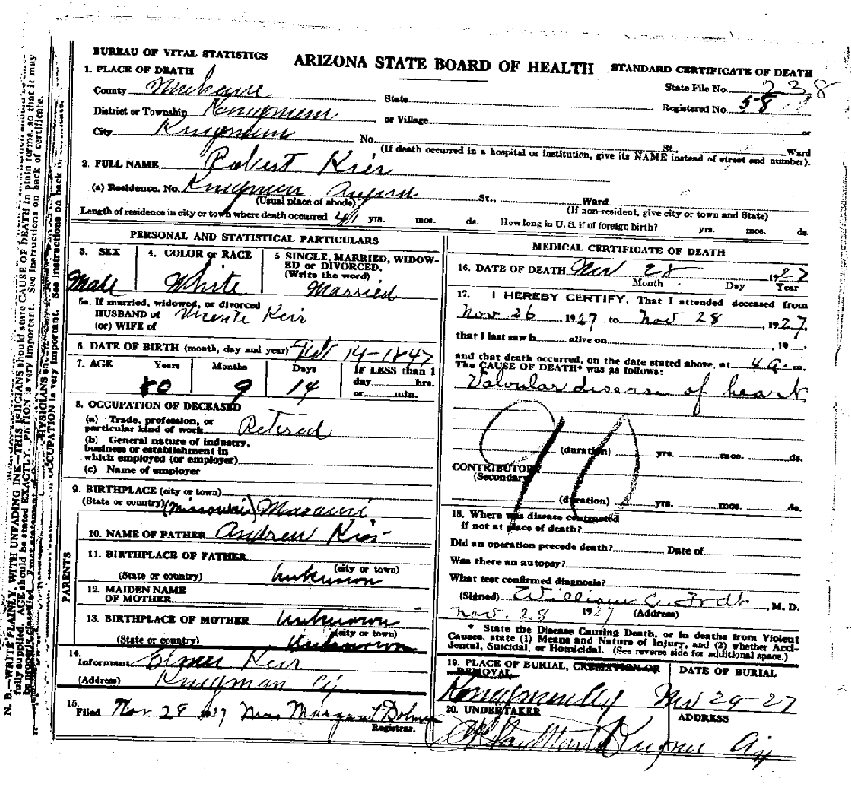 BUREAU OF VITAL STATISTICS ARIZONA STATE BOARD OF HEALTH STANDARD CERTIFICATE OF DEATH
1. PLACE OF DEATH
State File No. 238
County Mohave State Registered No. 58
District or Township Kingman or Village or
City Kingman No. St. Ward
(If death occurred in a hospital or institution, give its NAME instead of street and number).
2. FULL NAME Robert Kier
(a) Residence. No. Kingman St., Ward
(Usual place of abode) (If non-resident, give city or town and State)
Length of residence in city or town where death occurred yrs. mos. ds. How long in U. S. if of foreign birth? yrs. mos. ds.
PERSONAL AND STATISTICAL PARTICULARS
3. SEX 4. COLOR or RACE 5 SINGLE, MARRIED, WIDOWED or DIVORCED. (Write the word)
Male White Married
5a. If married, widowed, or divorced
HUSBAND of Kier
(or) WIFE of
6. DATE OF BIRTH (month, day and year) Feb 14-1847
7. AGE Years Months Days If LESS than 1
80 9 14 day hrs.
or min.
8. OCCUPATION OF DECEASED
(a) Trade, profession, or
particular kind of work Retired
(b) General nature of industry,
business or establishment in
which employed (or employer)
(c) Name of employer
9. BIRTHPLACE (city or town)
(State or country) (Missouri) Missouri
10. NAME OF FATHER Andrew Kier
PARENTS
11. BIRTHPLACE OF FATHER
(city or town)
(State or country) Unknown
12. MAIDEN NAME
OF MOTHER
13. BIRTHPLACE OF MOTHER Unknown
(city or town)
(State or country) Unknown
14.
Informant Elmer Keir
(Address) Kingman
15.
Filed Nov 28 1927 Margaret
Registrar.
MEDICAL CERTIFICATE OF DEATH
16. DATE OF DEATH Nov 28 1927
Month Day Year
17. I HEREBY CERTIFY, That I attended deceased from
Nov 26 1927 to Nov 28, 1927
that I last saw h alive on, 19
and that death occurred, on the date stated above, at 4 a. m.
The CAUSE OF DEATH* was as follows:
Valvular disease of heart
90
(duration) yrs. mos. ds.
CONTRIBUTORY
(Secondary)
(duration) yrs. mos. ds.
18. Where was disease contracted
if not at place of death?
Did an operation precede death? Date of
Was there an autopsy?
What test confirmed diagnosis?
(Signed) William M. D.
Nov. 28 1927 (Address)
* State the Disease Causing Death, or in deaths from Violent
Causes, state (1) Means and Nature of Injury, and (2) whether Accidental, Suicidal, or Homicidal. (See reverse side for additional space.)
19. PLACE OF BURIAL, CREMATION OR REMOVAL DATE OF BURIAL
Nov 29-27
20. UNDERTAKER ADDRESS
Kingman